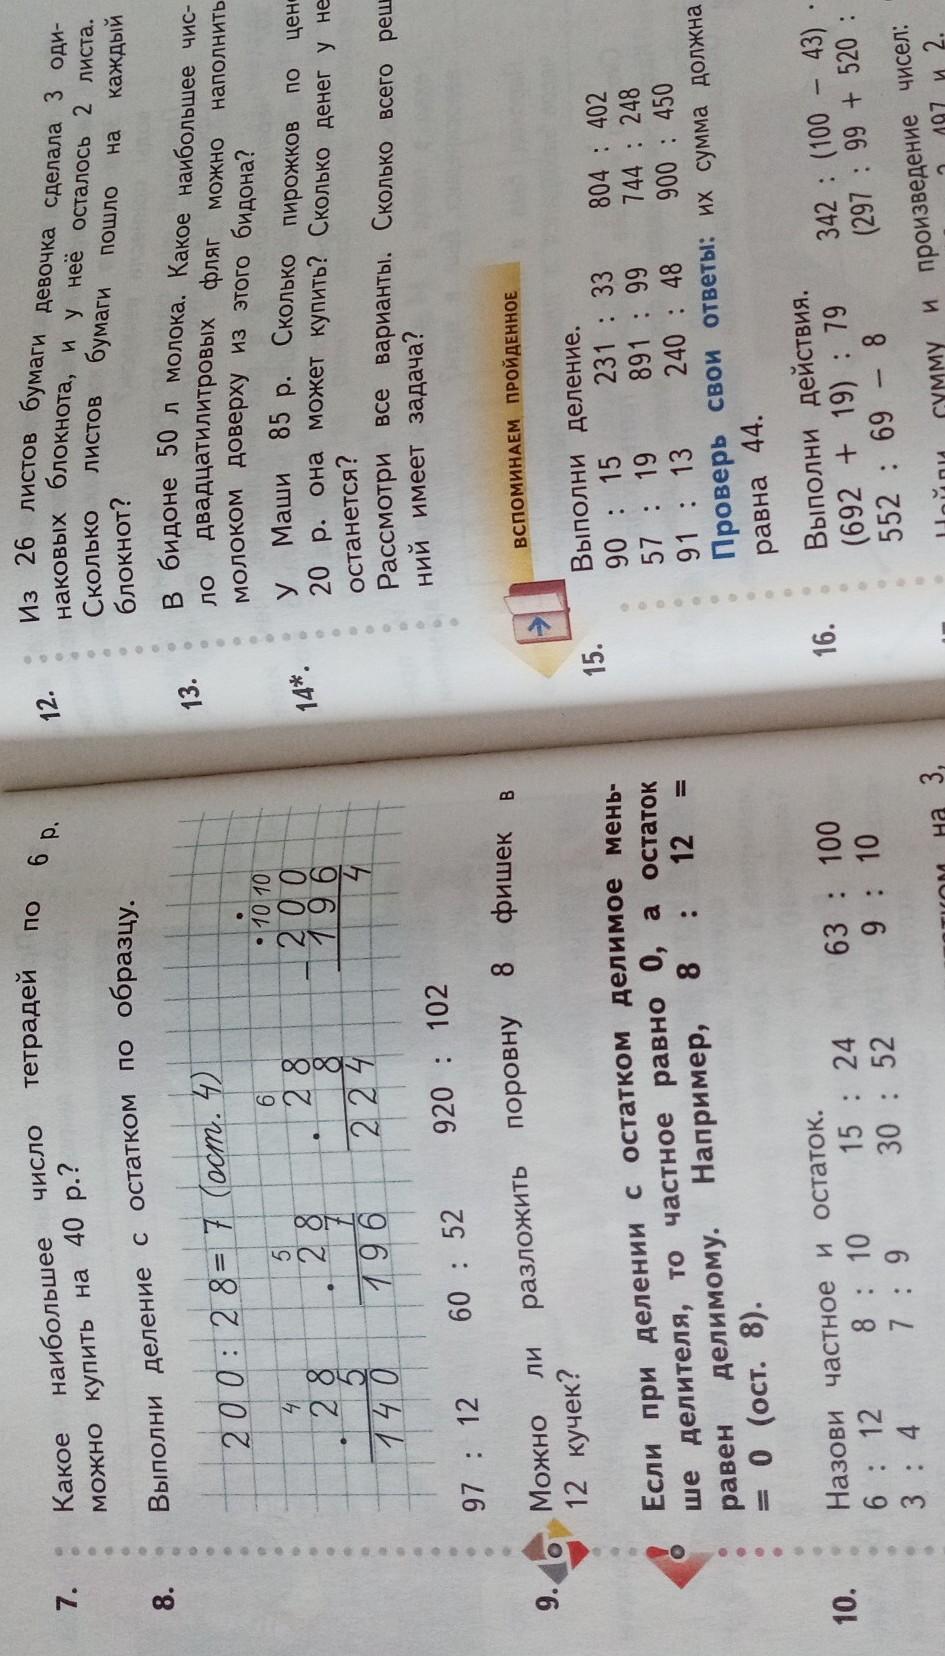 7. Какое наибольшее число тетрадей по 6 р.
можно купить на 40 р.?
8. Выполни деление с остатком по образцу.
200 : 28 = 7 (ост. 4)
4 5 6 • •
10 10
· 28 · 28 · 28 − 200
5 7 8 196
140 196 224 4
97 : 12 60 : 52 920 : 102
9. Можно ли разложить поровну 8 фишек в
12 кучек?
Если при делении с остатком делимое мень-
ше делителя, то частное равно 0, а остаток
равен делимому. Например, 8 : 12 =
= 0 (ост. 8).
10. Назови частное и остаток.
6 : 12 8 : 10 15 : 24 63 : 100
3 : 4 7 : 9 30 : 52 9 : 10
на 3,
12. Из 26 листов бумаги девочка сделала 3 оди-
наковых блокнота, и у неё осталось 2 листа.
Сколько листов бумаги пошло на каждый
блокнот?
13. В бидоне 50 л молока. Какое наибольшее чис-
ло двадцатилитровых фляг можно наполнить
молоком доверху из этого бидона?
14*. У Маши 85 р. Сколько пирожков по цен
20 р. она может купить? Сколько денег у не
останется?
Рассмотри все варианты. Сколько всего реш
ний имеет задача?
ВСПОМИНАЕМ ПРОЙДЕННОЕ
15. Выполни деление.
90 : 15 231 : 33 804 : 402
57 : 19 891 : 99 744 : 248
91 : 13 240 : 48 900 : 450
Проверь свои ответы: их сумма должна
равна 44.
16. Выполни действия.
(692 + 19) : 79 342 : (100 − 43) ·
552 : 69 − 8 (297 : 99 + 520 :
сумму и произведение чисел:
497 и 2.